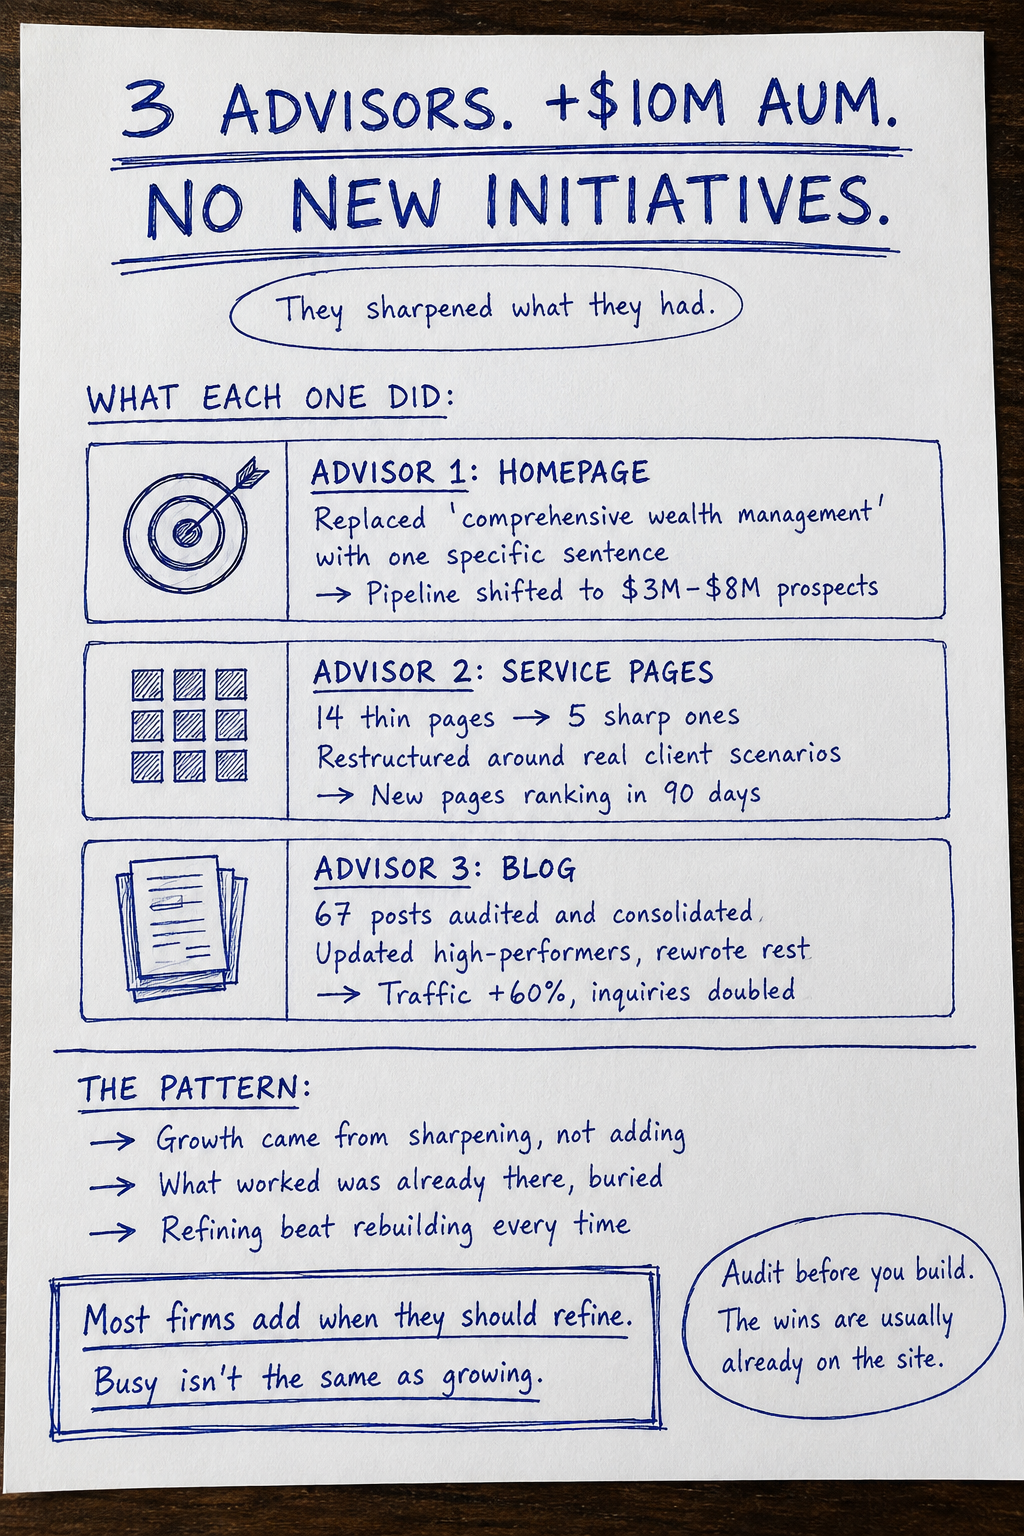 3 ADVISORS. +$10M AUM.
NO NEW INITIATIVES.
They sharpened what they had.
WHAT EACH ONE DID:
ADVISOR 1: HOMEPAGE
Replaced 'comprehensive wealth management'
with one specific sentence
→ Pipeline shifted to $3M–$8M prospects
ADVISOR 2: SERVICE PAGES
14 thin pages → 5 sharp ones
Restructured around real client scenarios
→ New pages ranking in 90 days
ADVISOR 3: BLOG
67 posts audited and consolidated.
Updated high-performers, rewrote rest.
→ Traffic +60%, inquiries doubled
THE PATTERN:
→ Growth came from sharpening, not adding
→ What worked was already there, buried
→ Refining beat rebuilding every time
Most firms add when they should refine.
Busy isn't the same as growing.
Audit before you build.
The wins are usually
already on the site.